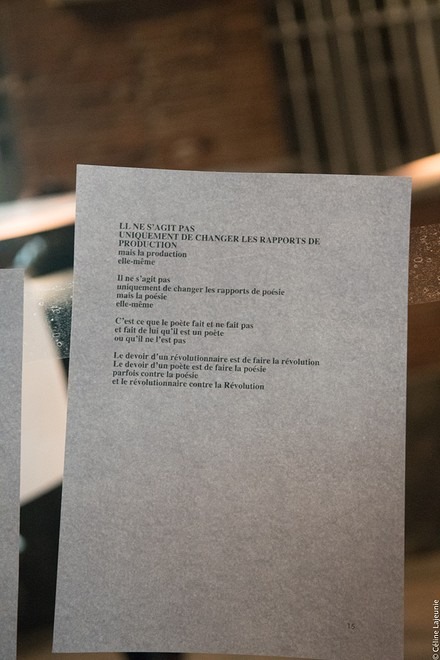 I.L NE S'AGIT PAS
UNIQUEMENT DE CHANGER LES RAPPORTS DE
PRODUCTION
mais la production
elle-même
Il ne s'agit pas
uniquement de changer les rapports de poésie
mais la poésie
elle-même
C'est ce que le poète fait et ne fait pas
et fait de lui qu'il est un poète
ou qu'il ne l'est pas
Le devoir d'un révolutionnaire est de faire la révolution
Le devoir d'un poète est de faire la poésie
parfois contre la poésie
et le révolutionnaire contre la Révolution
15
© Céline Lajeunie